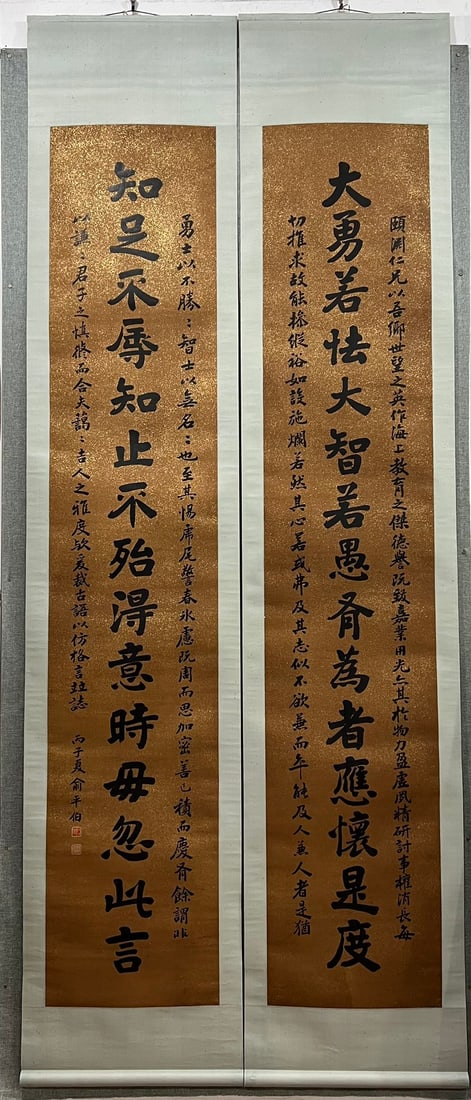 頤淵仁兄以吾鄉世望之英作海上教育之傑德譽既致嘉業用光亦其於物力盈虛夙精研討事權消長每
大勇若怯大智若愚有為者應懷是度
切推求故能操縱裕如設施爛若然其心若或弗及其志似不欲兼而卒能及人兼人者是猶
勇士以不勝〻智士以無名〻也至其惕虎尾警春冰慮既周而思加密善已積而慶有餘謂非
知足不辱知止不殆得意時毋忽此言
以謙〻君子之慎脩而合夫藹〻吉人之雅度歟爰裁古語以仿格言竝誌 丙子夏俞平伯